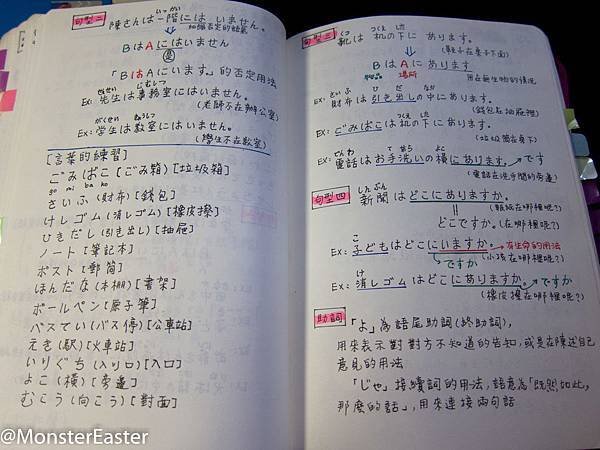 句型二 陳さんは一階には いません。
いっかい
加強否定的語氣
BはAにはいません
是
「BはAにいます。」的否定用法
せんせい じむしつ
EX: 先生は事務室にはいません。
(老師不在辦公室)
がくせい きょうしつ
EX: 学生は教室にはいません。
(學生不在教室)
[言葉的練習]
ごみばこ (ごみ箱) [垃圾箱]
go mi ba ko
さいふ (財布) [錢包]
けしゴム (消しゴム) [橡皮擦]
ひきだし (引き出し) [抽屜]
ノート [筆記本]
ポスト [郵筒]
ほんだな (本棚) [書架]
ボールペン [原子筆]
バスてい (バス停) [公車站]
えき (駅) [火車站]
いりぐち (入り口) [入口]
よこ (横) [旁邊]
むこう (向こう) [對面]
くつ つくえ した
句型三 靴は 机の下に あります。
(鞋子在桌子下面)
BはAに あります
物品 場所
用在無生物的情況
さいふ ひ だ なか
EX: 財布は引き出しの中にあります。
(錢包在抽屜裡)
つくえ した
EX: ごみばこは机の下にあります。
(垃圾筒在桌下)
でんわ てあら よこ
EX: 電話はお手洗いの横にあります。→です
(電話在洗手間的旁邊)
しんぶん
句型四 新聞はどこにありますか。
(報紙在哪裡呢?)
どこですか。(在哪裡呢?)
こ
EX: 子どもはどこにいますか。→有生命的用法
ですか (小孩在哪裡呢?)
け
EX: 消しゴムはどこにありますか。→ですか
(橡皮擦在哪裡呢?)
助詞 「よ」為語尾助詞(終助詞),
用來表示對對方不知道的告知,或是在陳述自己
意見的用法
「じゃ」接續詞的用法,語意為「既然如此,
那麼的話」,用來連接兩句話
@MonsterEaster